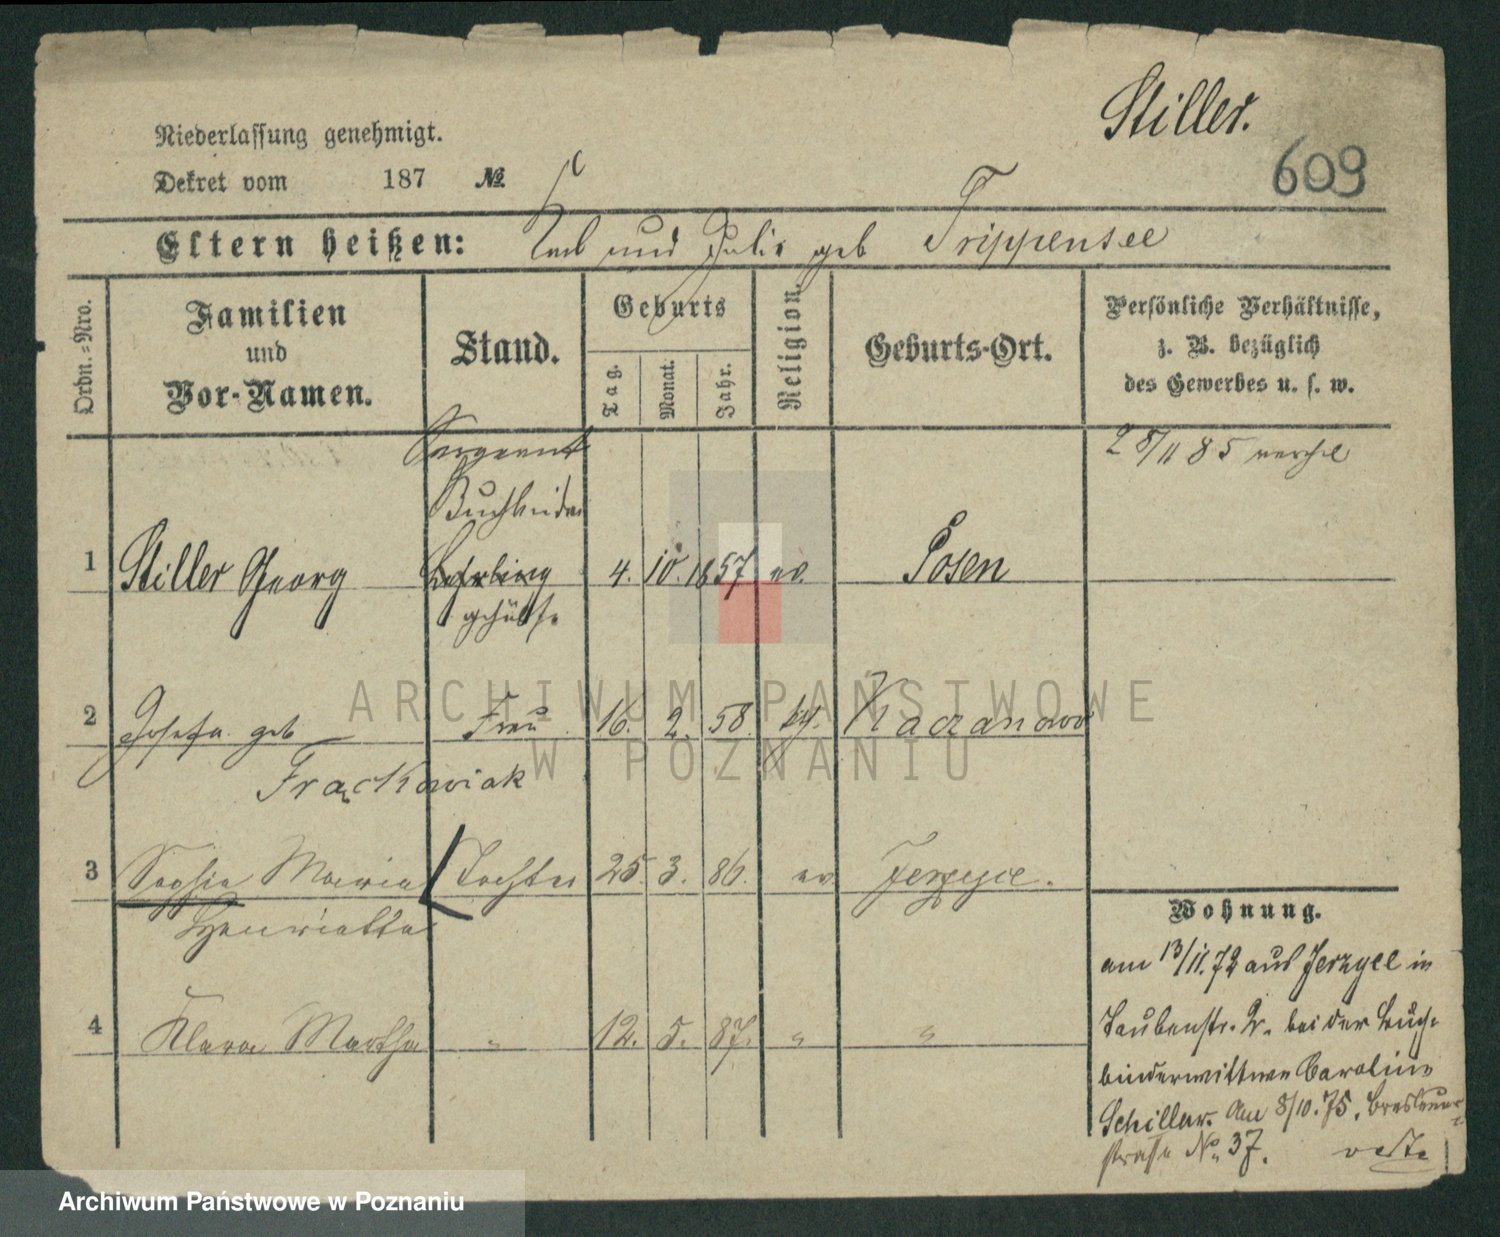 Stiller.
609
Niederlassung genehmigt.
Dekret vom 187 №
Eltern heißen: Karl und Julie geb Trippensee
Ordn.=Nro.
Familien
und
Vor-Namen.
Stand.
Geburts
Tag.
Monat.
Jahr.
Religion.
Geburts-Ort.
Persönliche Verhältnisse,
z. B. bezüglich
des Gewerbes u. s. w.
Sergeant
28/11 85
Buchbinder
1 Stiller Georg Lehrling 4. 10. 1857 ev. Posen
gehülfe
2 Josefa geb Frau 16. 2. 58. kth. Kaczanowo
Frąckowiak
3 Sophie Maria Tochter 25. 3. 86. ev Jerzyce.
Henriette
4 Klara Martha " 12. 5. 87. " "
Wohnung.
am 13/11. 72 aus Jerzyce in
Taubenstr. 2. bei der Buch-
binderwittwe Caroline
Schiller. Am 8/10. 75. Breslauer-
straße No 37.
ARCHIWUM PAŃSTWOWE
W POZNANIU
Archiwum Państwowe w Poznaniu